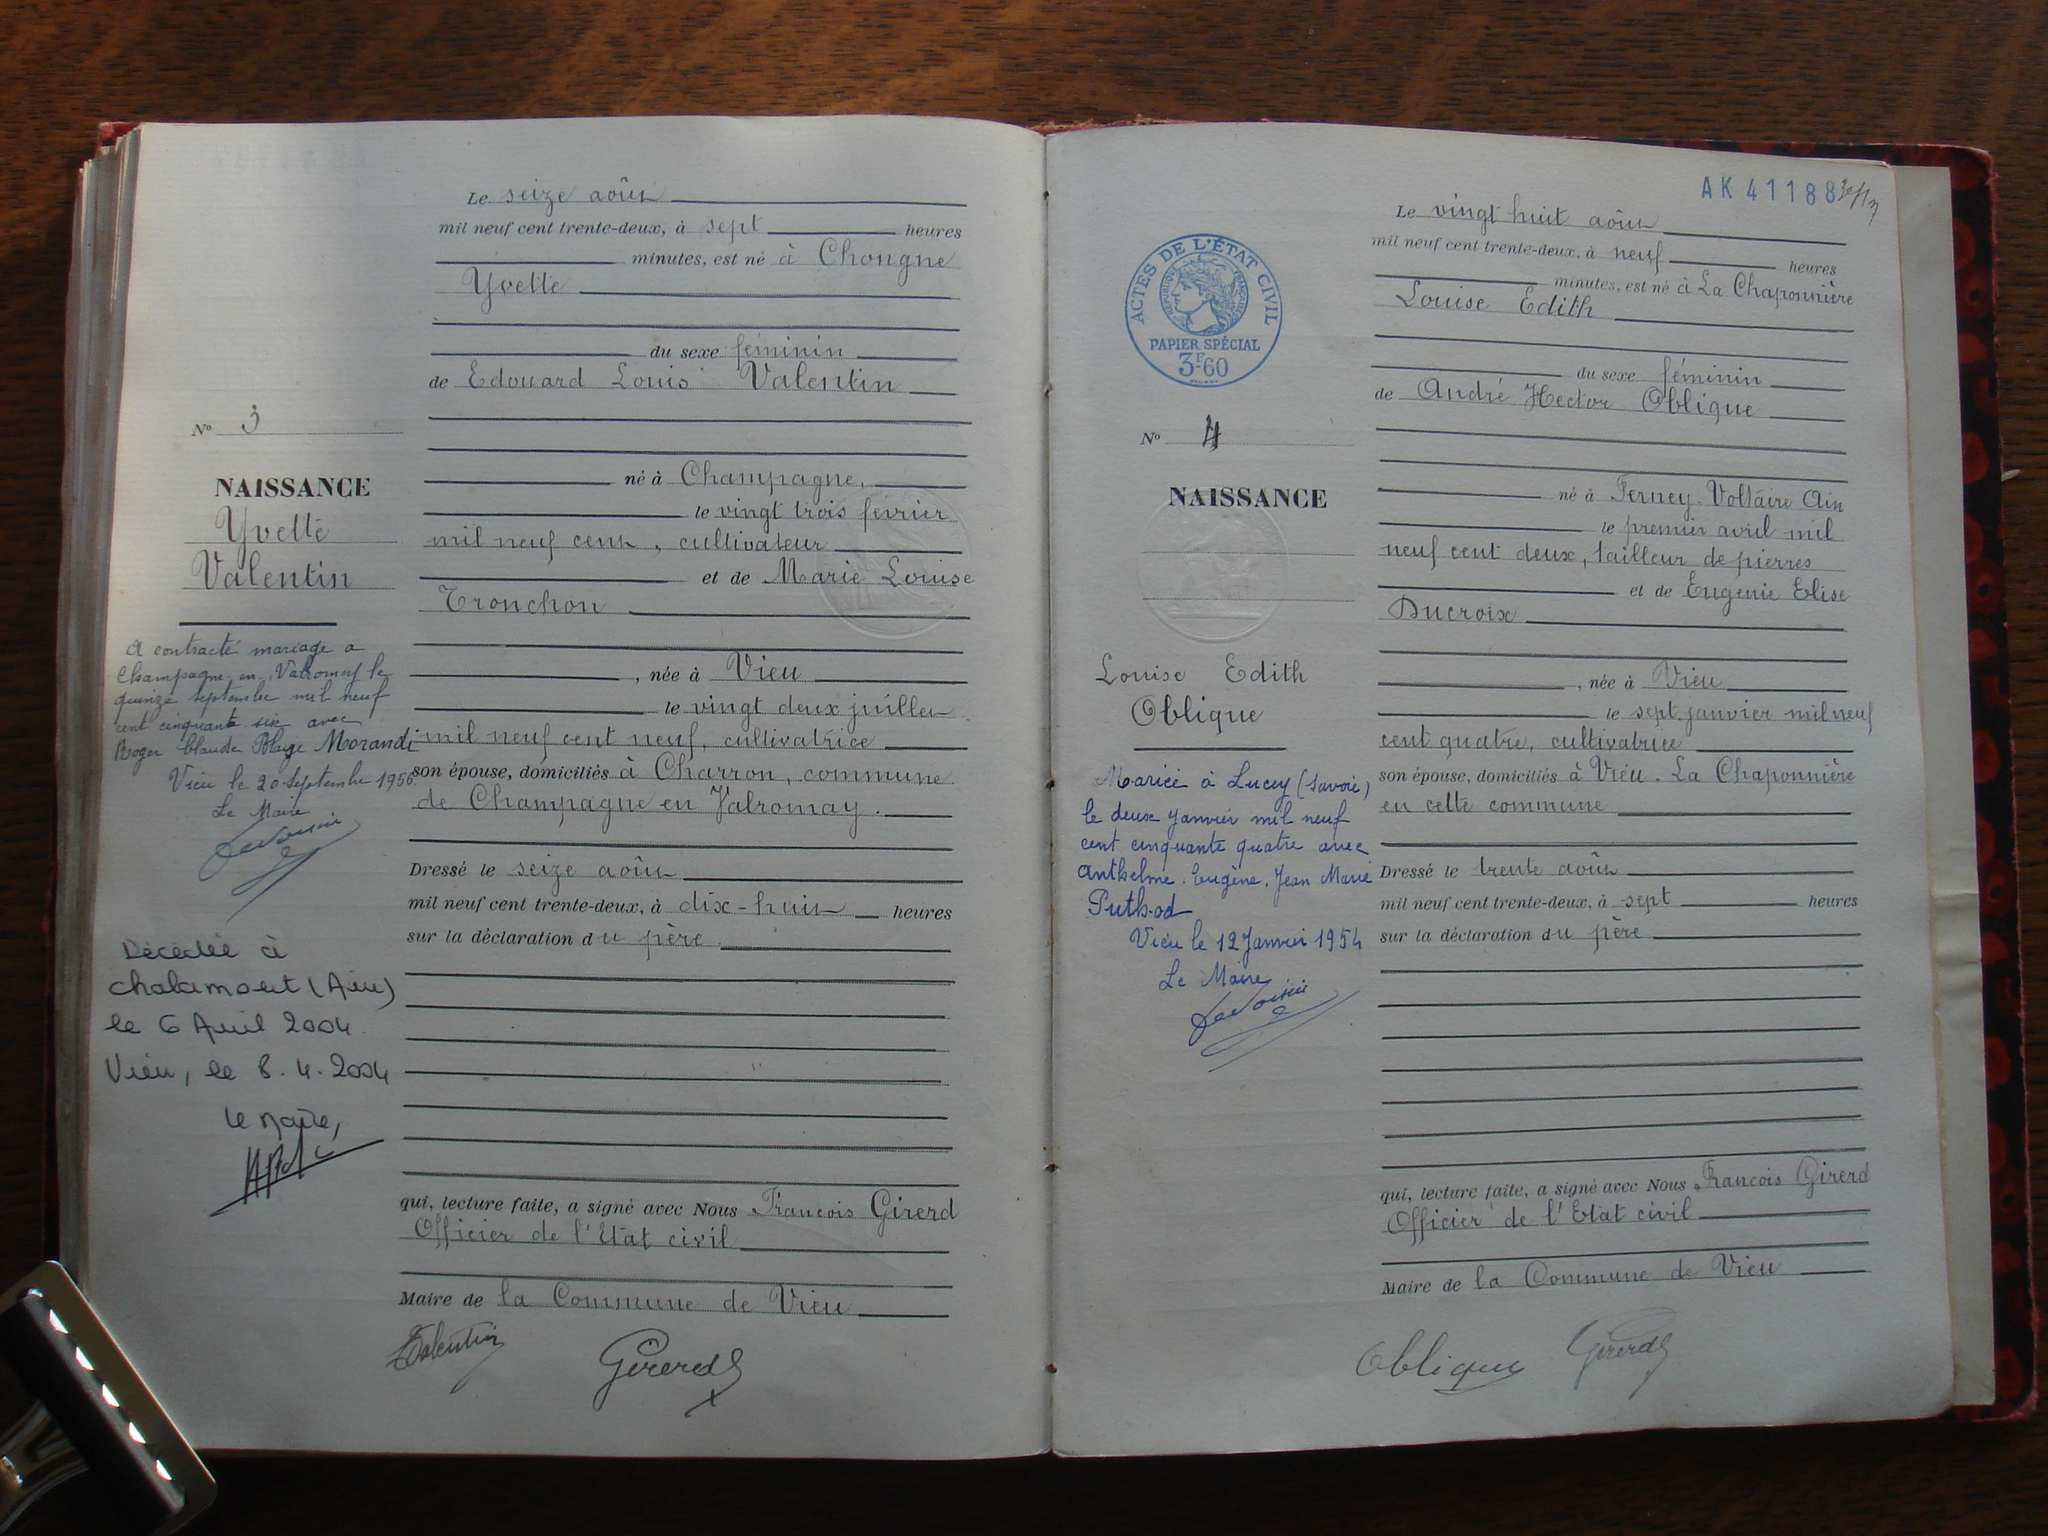 Le seize août
mil neuf cent trente-deux, à sept heures
minutes, est né à Chongne
Yvette
du sexe féminin
de Edouard Louis Valentin
né à Champagne,
le vingt trois février
mil neuf cent, cultivateur
et de Marie Louise
Tronchon
, née à Vieu
le vingt deux juillet
mil neuf cent neuf, cultivatrice
son épouse, domiciliés à Charron, commune
de Champagne en Valromay.
Dressé le seize août
mil neuf cent trente-deux, à dix-huit heures
sur la déclaration du père
qui, lecture faite, a signé avec Nous François Girerd
Officier de l'Etat civil
Maire de la Commune de Vieu
Valentin Girerd
No 3
NAISSANCE
Yvette
Valentin
A contracté mariage a
Champagne en Valromey le
quinze septembre mil neuf
cent cinquante six avec
Roger Claude Blaize Morandi
Vieu le 20 Septembre 1956
Le Maire
Décédée à
Chalamont (Ain)
le 6 Avril 2004
Vieu, le 8.4.2004
le Maire,
AK 41188
ACTES DE L'ÉTAT CIVIL
RÉPUBLIQUE FRANÇAISE
PAPIER SPÉCIAL
3F60
No 4
NAISSANCE
Louise Edith
Oblique
Mariée à Lucey (Savoie)
le deux Janvier mil neuf
cent cinquante quatre avec
Anthelme, Eugène, Jean Marie
Puthod
Vieu le 12 Janvier 1954
Le Maire
Le vingt huit août
mil neuf cent trente-deux, à neuf heures
minutes, est né à La Chaponnière
Louise Edith
du sexe féminin
de André Hector Oblique
né à Ferney-Voltaire Ain
le premier avril mil
neuf cent deux, tailleur de pierres
et de Eugenie Elise
Ducroix
, née à Vieu
le sept janvier mil neuf
cent quatre, cultivatrice
son épouse, domiciliés à Vieu. La Chaponnière
en cette commune
Dressé le trente août
mil neuf cent trente-deux, à sept heures
sur la déclaration du père
qui, lecture faite, a signé avec Nous François Girerd
Officier de l'Etat civil
Maire de la Commune de Vieu
Oblique Girerd